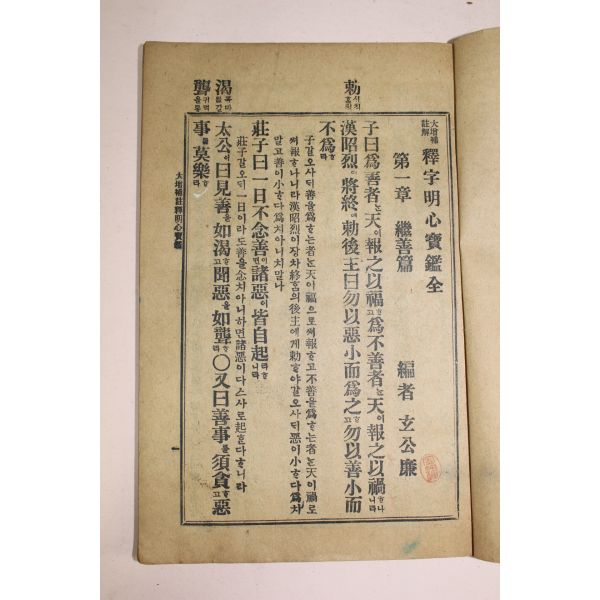 大增補註解 釋字明心寶鑑全
第一章 繼善篇 編者 玄公廉
子曰爲善者는天이報之以福고爲不善者는天이報之以禍니라
漢昭烈이將終에勅後主曰勿以惡小而爲之고勿以善小而
不爲라
子갈오사되善을爲하는者는天이福으로써報하고不善을爲하는者는天이禍로
써報하나니라漢昭烈이장차終흠의後主에게勅하야갈오사되惡이小하다爲치
말고善이小하다爲치아니치말나
莊子曰一日不念善이면諸惡이皆自起라니라
莊子갈오되一日이라도善을念치아니하면諸惡이다스사로起한다하니라
太公이曰見善을如渴고聞惡을如聾라○又曰善事를須貪고惡
事를莫樂라
勅
渴
聾
大增補註釋明心寶鑑
一